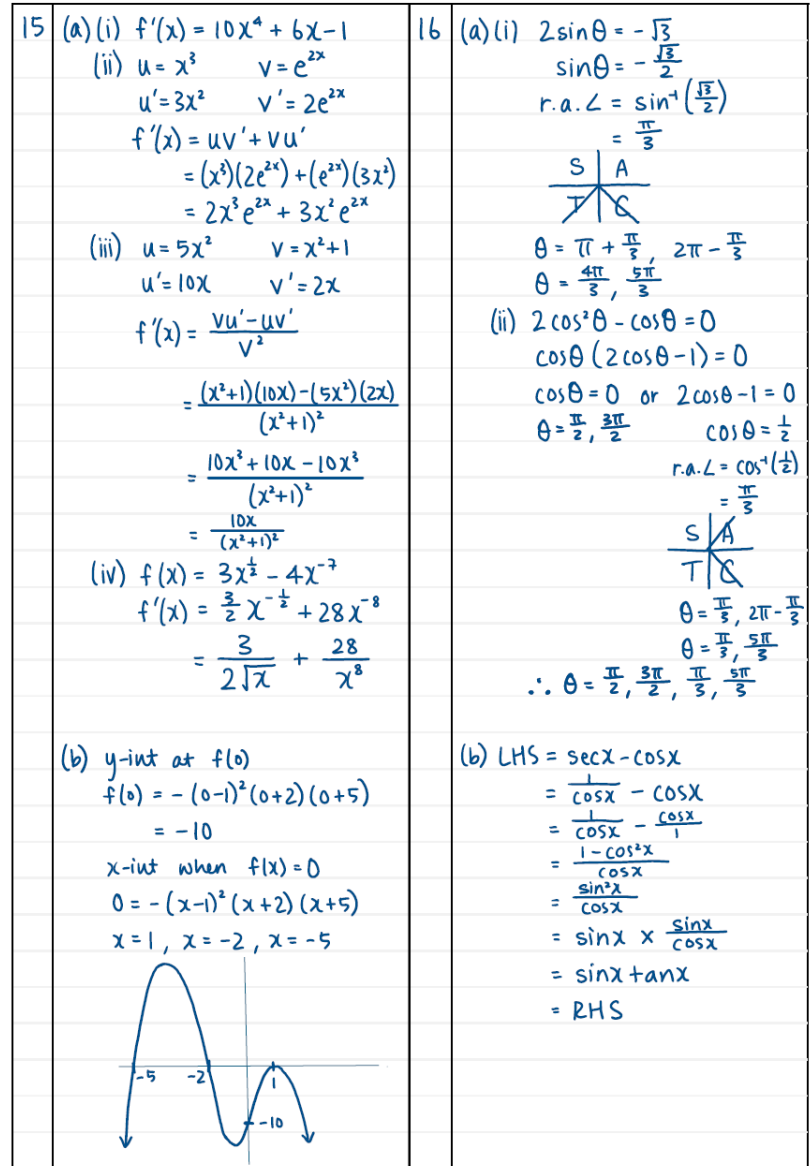 15
(a)(i) f'(x) = 10x⁴ + 6x - 1
(ii) u = x³ v = e²ˣ
u' = 3x² v' = 2e²ˣ
f'(x) = uv' + vu'
= (x³)(2e²ˣ) + (e²ˣ)(3x²)
= 2x³e²ˣ + 3x²e²ˣ
(iii) u = 5x² v = x² + 1
u' = 10x v' = 2x
f'(x) = (vu' - uv')/v²
= ((x²+1)(10x) - (5x²)(2x))/(x²+1)²
= (10x³ + 10x - 10x³)/(x²+1)²
= 10x/(x²+1)²
(iv) f(x) = 3x^(1/2) - 4x⁻⁷
f'(x) = 3/2 x^(-1/2) + 28x⁻⁸
= 3/(2√x) + 28/x⁸
(b) y-int at f(0)
f(0) = -(0-1)²(0+2)(0+5)
= -10
x-int when f(x) = 0
0 = -(x-1)²(x+2)(x+5)
x = 1, x = -2, x = -5
-5 -2 1
-10
16
(a)(i) 2sinθ = -√3
sinθ = -√3/2
r.a.∠ = sin⁻¹(√3/2)
= π/3
S A
T C
θ = π + π/3, 2π - π/3
θ = 4π/3, 5π/3
(ii) 2cos²θ - cosθ = 0
cosθ(2cosθ - 1) = 0
cosθ = 0 or 2cosθ - 1 = 0
θ = π/2, 3π/2 cosθ = 1/2
r.a.∠ = cos⁻¹(1/2)
= π/3
S A
T C
θ = π/3, 2π - π/3
θ = π/3, 5π/3
∴ θ = π/2, 3π/2, π/3, 5π/3
(b) LHS = secx - cosx
= 1/cosx - cosx
= 1/cosx - cosx/1
= (1 - cos²x)/cosx
= sin²x/cosx
= sinx × sinx/cosx
= sinxtanx
= RHS